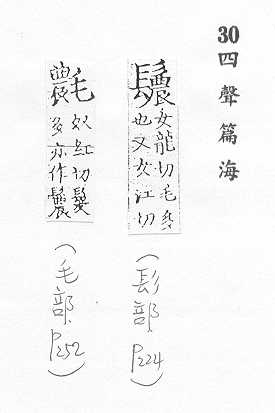 30四聲篇海
鬞
女龍切毛多
也又女江切
(髟部P224)
奴紅切髮
多亦作鬞
(毛部P252)